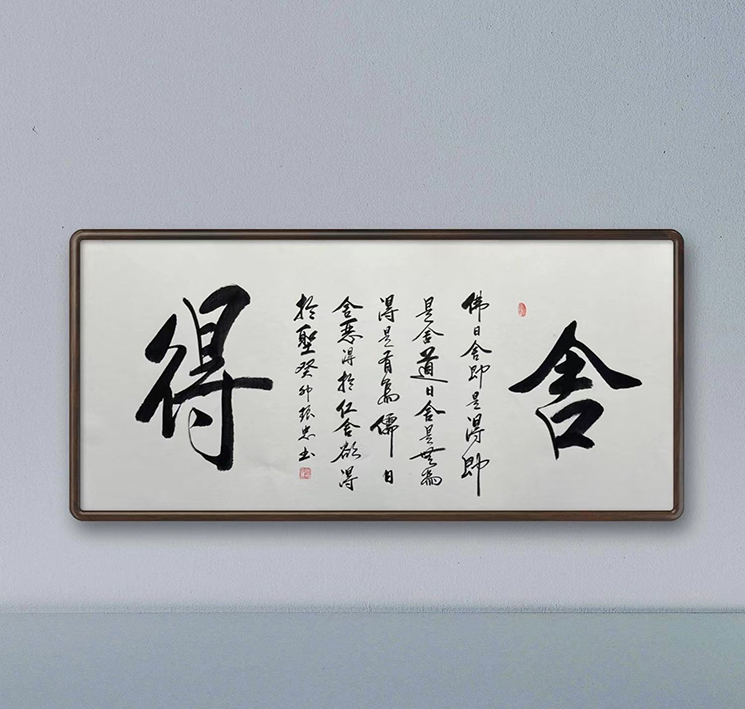 舍
佛曰舍即是得即
是舍道曰舍是無為
得是有為儒曰
舍惡得於仁舍欲得
於聖癸卯振忠書
得